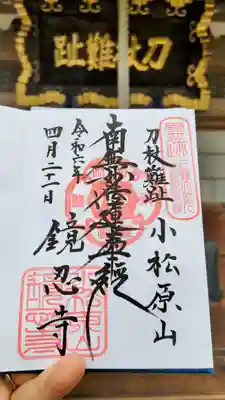 刀杖難趾
刀杖難趾
小松原山
南無妙法蓮華経
令和六年
四月二十一日
鏡忍寺